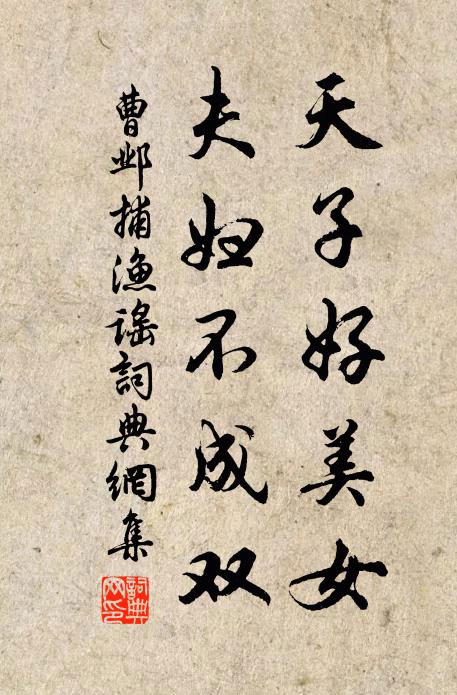 天子好美女
夫妇不成双
曹邺捕渔谣詞典網集
詞典网印